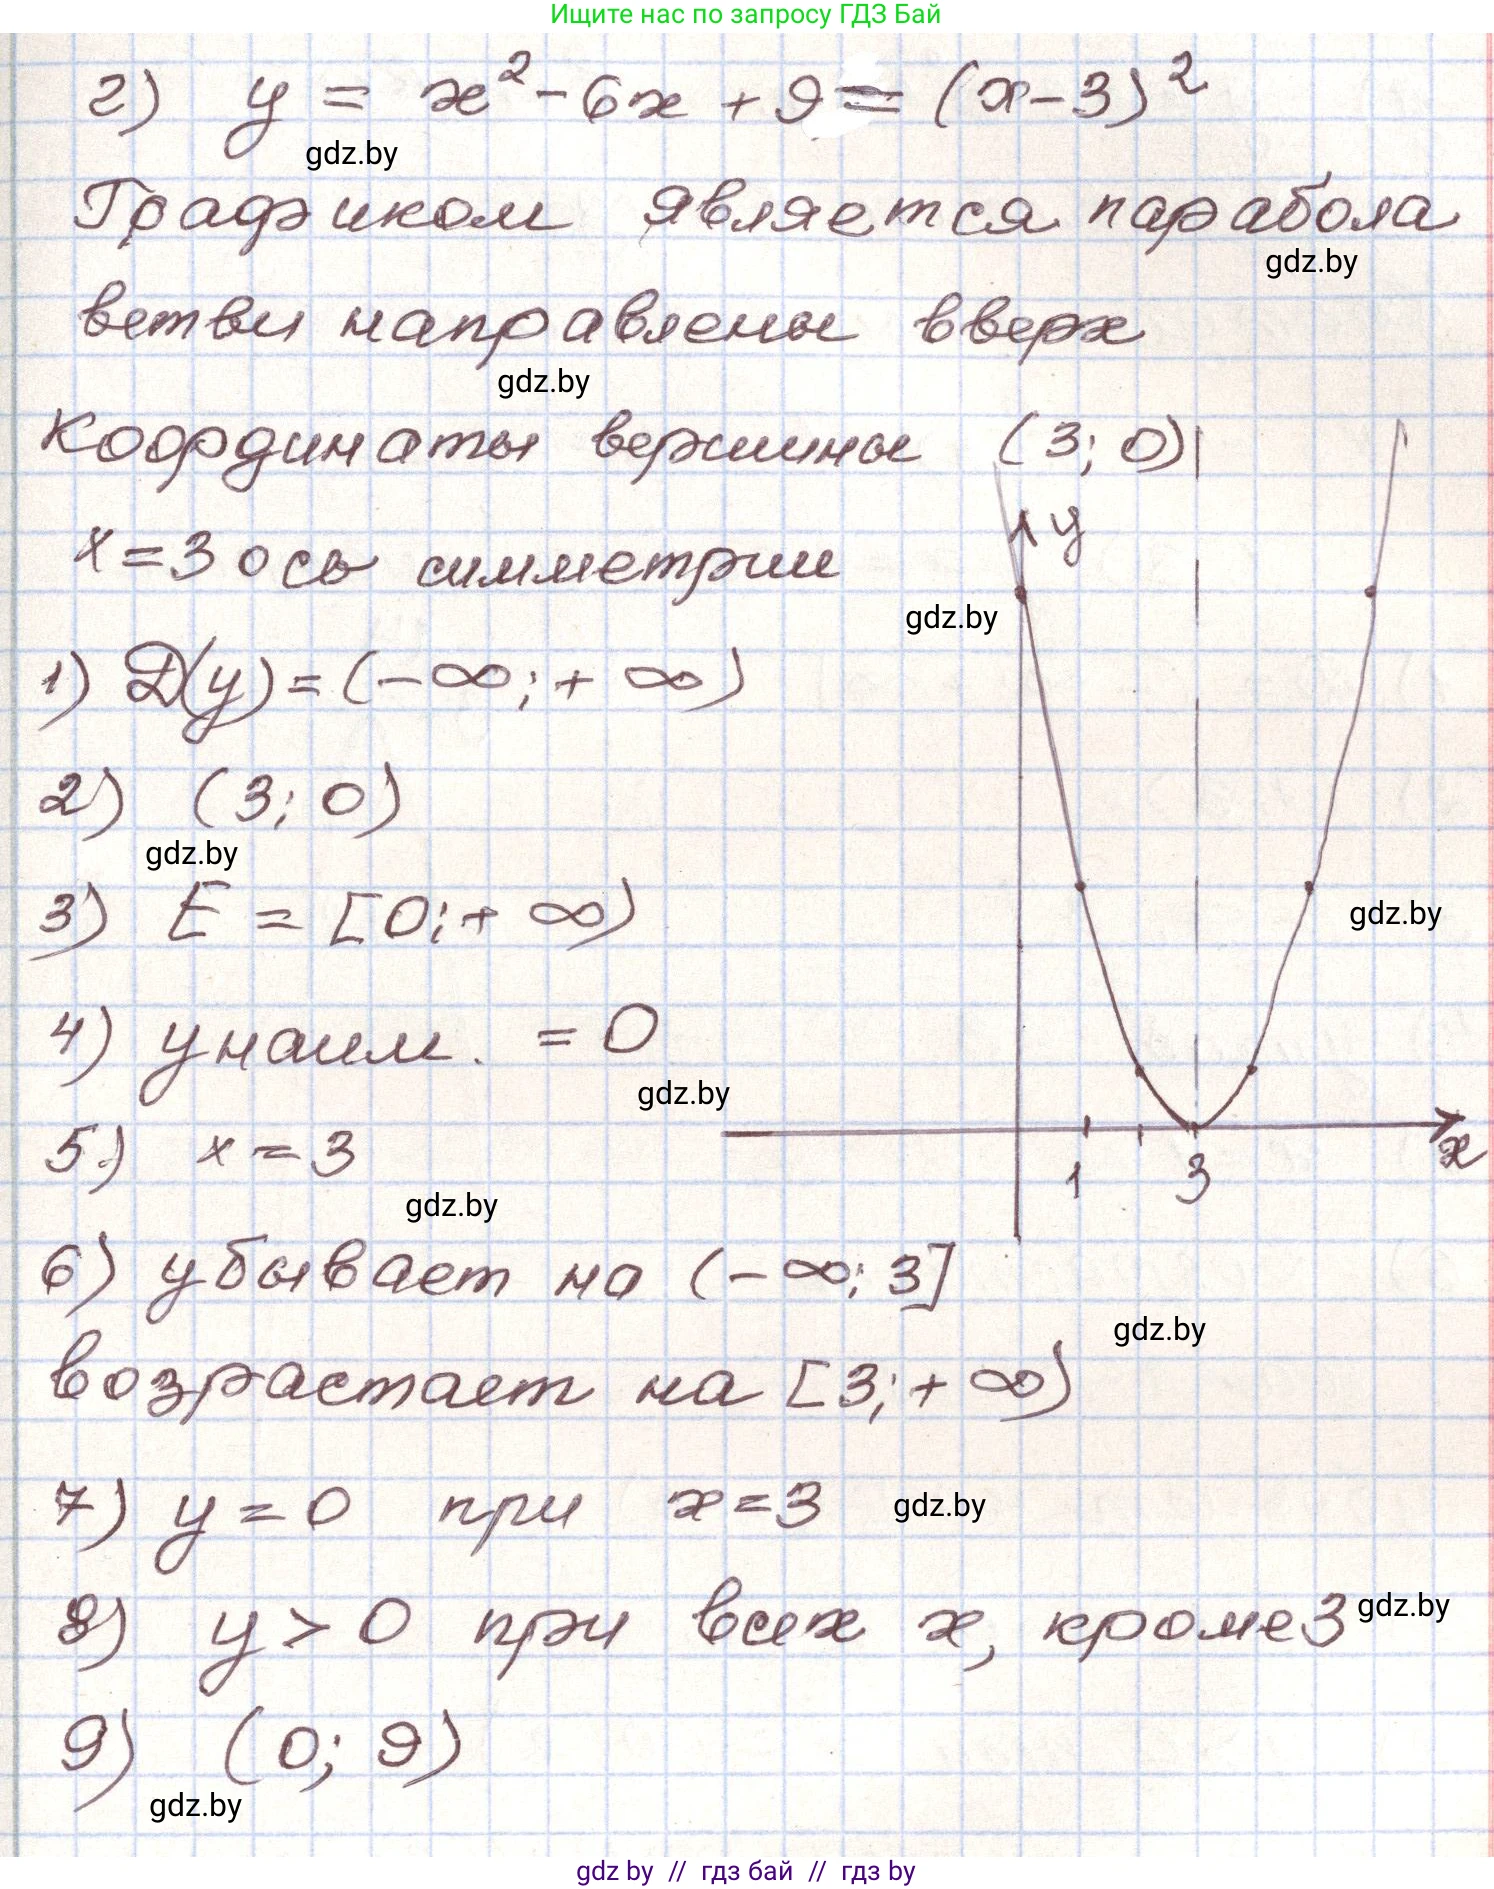 Ищите нас по запросу ГДЗ Бай
г) y = x² - 6x + 9 = (x - 3)²
gdz.by
Графиком является парабола
gdz.by
ветви направлены вверх
gdz.by
Координаты вершины (3; 0)
y
x = 3 ось симметрии
gdz.by
1) D(y) = (-∞; + ∞)
2) (3; 0)
gdz.by
3) E = [0; + ∞)
gdz.by
4) y наим. = 0
gdz.by
x
5) x = 3
1 3
gdz.by
6) убывает на (-∞; 3]
gdz.by
возрастает на [3; + ∞)
7) y = 0 при x = 3
gdz.by
8) y > 0 при всех x, кроме 3
gdz.by
9) (0; 9)
gdz.by
gdz by // гдз бай // гдз by